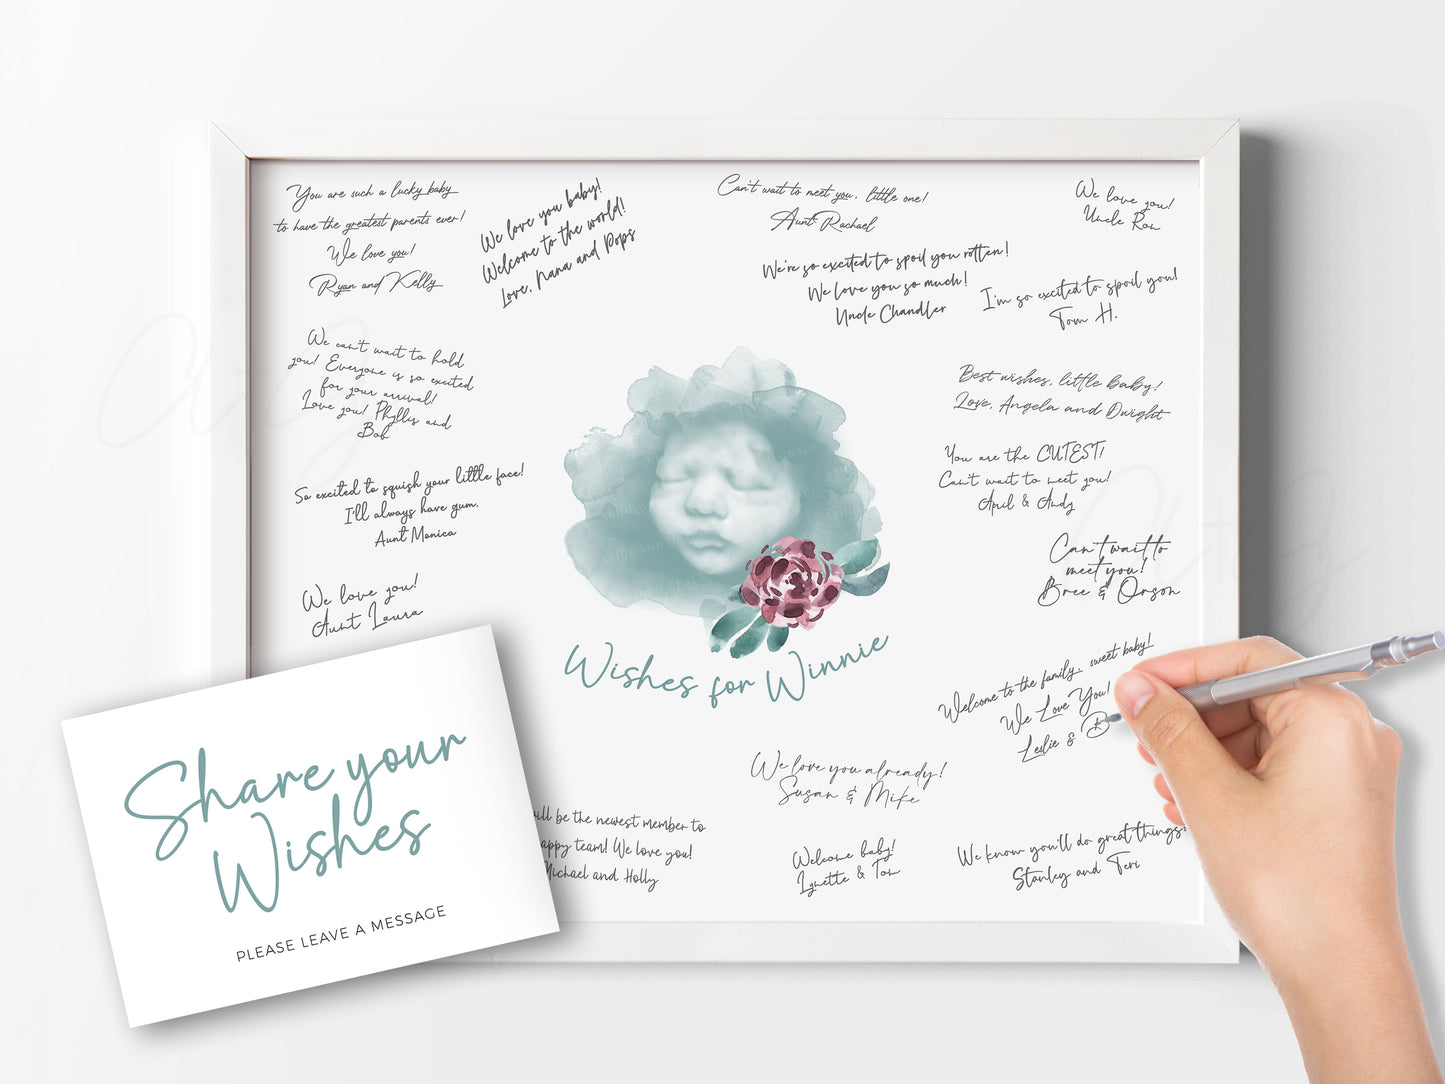 You are such a lucky baby
to have the greatest parents ever!
We love you!
Ryan and Kelly
We love you baby!
Welcome to the world!
Love, Nana and Pops
Can't wait to meet you, little one!
Aunt Rachael
We love you!
Uncle Ron
We're so excited to spoil you rotten!
We love you so much!
Uncle Chandler
I'm so excited to spoil you!
Tom H.
We can't wait to hold
you! Everyone is so excited
for your arrival!
Love you! Phyllis and
Bob
Best wishes, little baby!
Love, Angela and Dwight
You are the CUTEST!
Can't wait to meet you!
April & Andy
So excited to squish your little face!
I'll always have gum.
Aunt Monica
Can't wait to
meet you!
Bree & Orson
We love you!
Aunt Laura
Wishes for Winnie
Welcome to the family, sweet baby!
We Love You!
Leslie & B
Share your
Wishes
PLEASE LEAVE A MESSAGE
We love you already!
Susan & Mike
be the newest member to
team! We love you!
and Holly
Welcome baby!
Lynette & Tom
We know you'll do great things!
Stanley and Teri